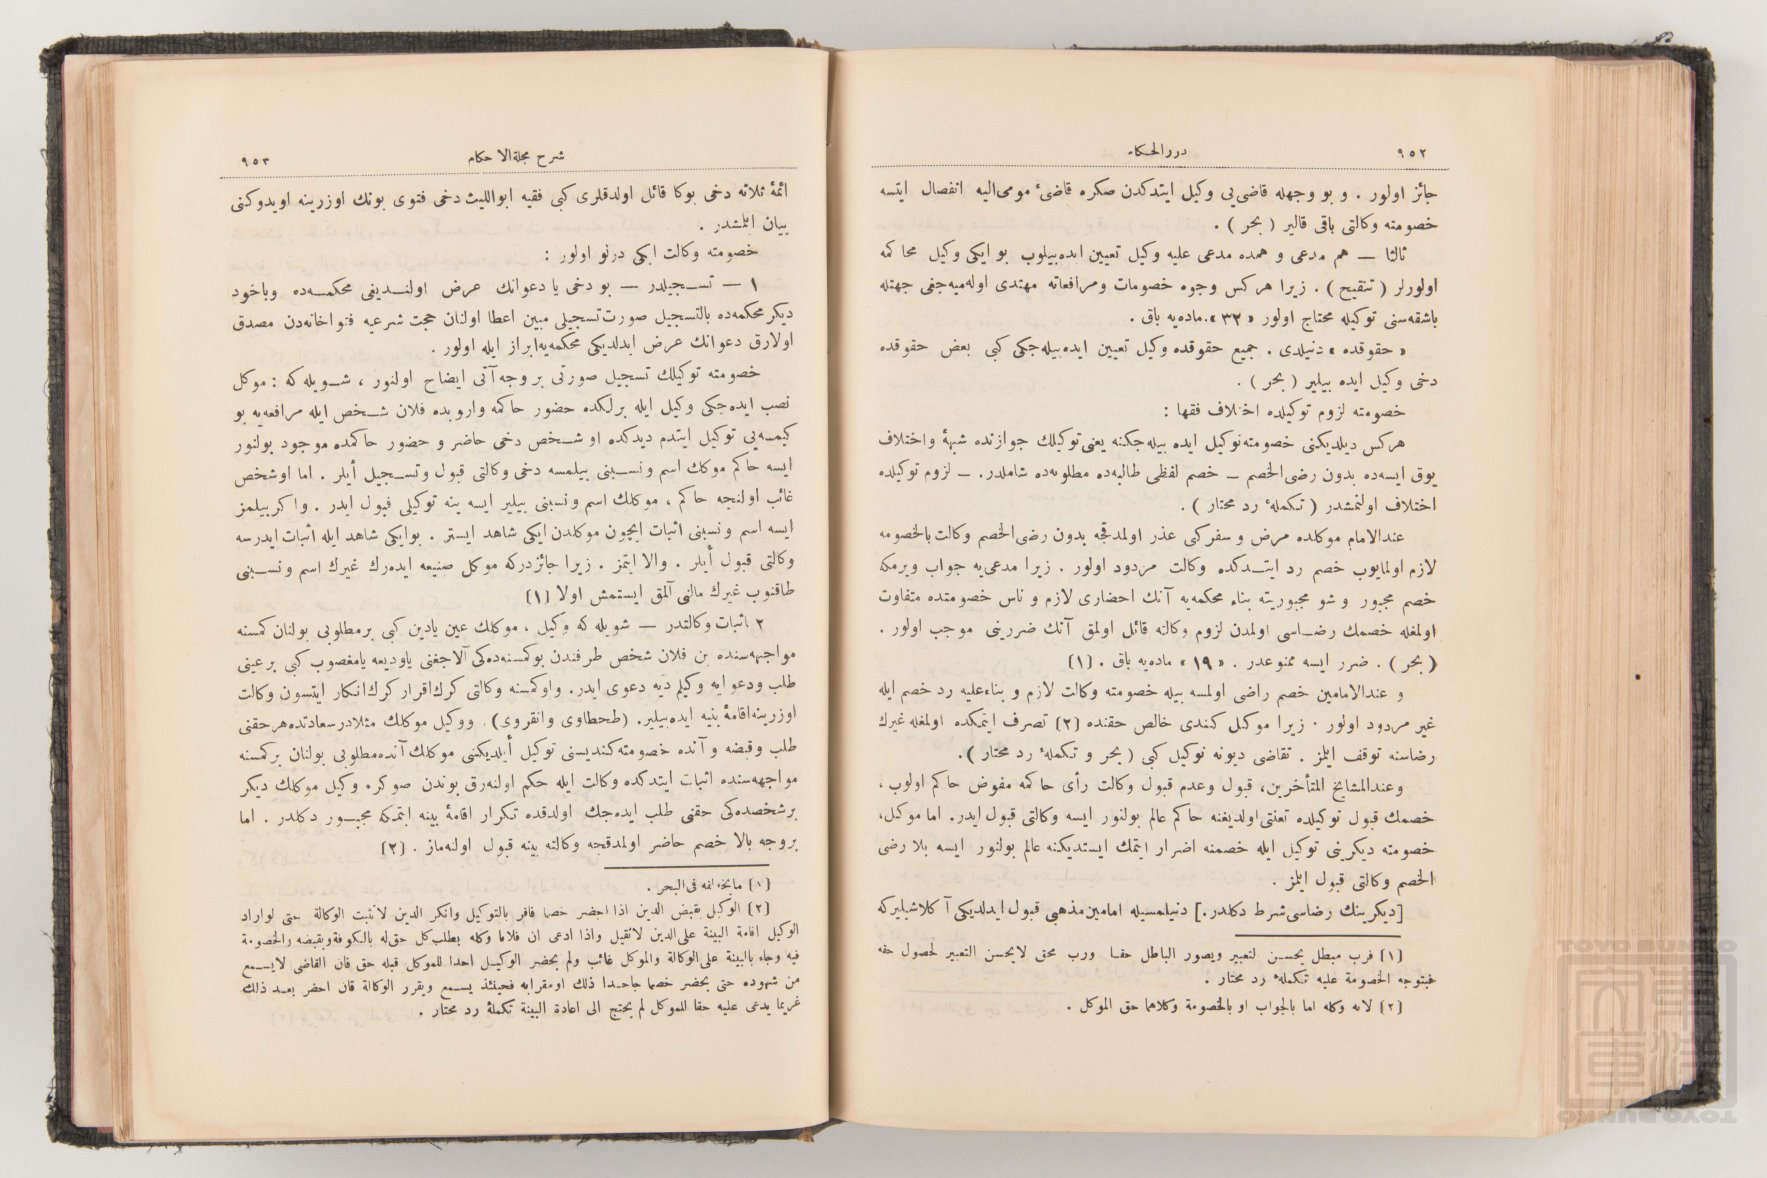 ٩٥٢
دررالحكام
جائز اولور . و بو وجهله قاضی‌یی وكیل ایتدكدن صكره قاضئ مومی‌الیه انفصال ایتسه
خصومته وكالتی باقی قالیر ( بحر ) .
ثالثا — هم مدعی و همده مدعی علیه وكیل تعیین ایده‌بیلوب بو ایكی وكیل محاكمه
اولورلر ( تنقیح ) . زیرا هركس وجوه خصومات ومرافعاته مهتدی اوله‌میه‌جغی جهتله
باشقه‌سنی توكیله محتاج اولور « ٣٢ ».ماده‌یه باق .
« حقوقده » دنیلدی . جمیع حقوقده وكیل تعیین ایده‌بیله‌جكی كبی بعض حقوقده
دخی وكیل ایده بیلیر ( بحر ) .
خصومته لزوم توكیلده اختلاف فقها :
هركس دیلدیكنی خصومته‌توكیل ایده بیله‌جكنه یعنی‌توكیلك جوازنده شبهۀ واختلاف
یوق ایسه‌ده بدون رضی‌الخصم — خصم لفظی طالبه‌ده مطلوبه‌ده شاملدر. — لزوم توكیلده
اختلاف اولنمشدر ( تكملۀ رد محتار ) .
عندالامام موكلده مرض و سفر كبی عذر اولمدقجه بدون رضی‌الخصم وكالت بالخصومه
لازم اولمایوب خصم رد ایتدكده وكالت مردود اولور . زیرا مدعی‌یه جواب ویرمكه
خصم مجبور و شو مجبوریته بناء محكمه‌یه آنك احضاری لازم و ناس خصومتده متفاوت
اولمغله خصمك رضاسی اولمدن لزوم وكالته قائل اولمق آنك ضررینی موجب اولور .
( بحر ) . ضرر ایسه ممنوعدر . « ١٩ » ماده‌یه باق . (١)
و عندالامامین خصم راضی اولمسه بیله خصومته وكالت لازم و بناءعلیه رد خصم ایله
غیر مردود اولور . زیرا موكل كندی خالص حقنده (٢) تصرف ایتمكده اولمغله غیرك
رضاسنه توقف ایلمز . تقاضی دیونه توكیل كبی ( بحر و تكملۀ رد محتار ) .
وعندالمشایخ المتأخرین، قبول وعدم قبول وكالت رأی حاكمه مفوض حاكم اولوب ،
خصمك قبول توكیلده تعنتی‌اولدیغنه حاكم عالم بولنور ایسه وكالتی قبول ایدر. اما موكل،
خصومته دیكرینی توكیل ایله خصمنه اضرار ایتمك ایستدیكنه عالم بولنور ایسه بلا رضی
الخصم وكالتی قبول ایلمز .
[دیكرینك رضاسی شرط دكلدر.] دنیلمسیله امامین مذهبی قبول ایدلدیكی آ كلاشیلیركه
(١) فرب مبطل یحسن لتعبیر ویصور الباطل حقا ورب محق لایحسن التعبیر لحصول حقه
فیتوجه الخصومة علیه تكملۀ رد محتار .
(٢) لانه وكله اما بالجواب او بالخصومة وكلاهما حق الموكل .
شرح مجلة‌الاحكام
٩٥٣
ائمۀ ثلاثه دخی بوكا قائل اولدقلری كبی فقیه ابواللیث دخی فتوی بونك اوزرینه اویدوكنی
بیان ائلمشدر .
خصومته وكالت ایكی درلو اولور :
١ — تسجیلدر — بو دخی یا دعوانك عرض اولندیغی محكمه‌ده ویاخود
دیكر محكمه‌ده بالتسجیل صورت‌تسجیلی مبین اعطا اولنان حجت شرعیه فتواخانه‌دن مصدق
اولارق دعوانك عرض ایدلدیكی محكمه‌یه‌ابراز ایله اولور .
خصومته توكیلك تسجیل صورتی بر وجه‌آتی ایضاح اولنور ، شویله كه : موكل
نصب ایده‌جكی وكیل ایله برلكده حضور حاكمه واروبده فلان شخص ایله مرافعه‌یه بو
كیمسه‌یی توكیل ایتدم دیدكده او شخص دخی حاضر و حضور حاكمده موجود بولنور
ایسه حاكم موكلك اسم ونسبنی بیلمسه دخی وكالتی قبول وتسجیل أیلر . اما اوشخص
غائب اولنجه حاكم ، موكلك اسم ونسبنی بیلیر ایسه ینه توكیلی قبول ایدر . واكر بیلمز
ایسه اسم ونسبنی اثبات ایچون موكلدن ایكی شاهد ایستر . بوایكی شاهد ایله اثبات ایدرسه
وكالتی قبول أیلر . والا ایتمز . زیرا جائزدركه موكل صنیعه ایده‌رك غیرك اسم ونسبنی
طاقنوب غیرك مالنی آلمق ایستمش اولا (١)
٢ اثبات وكالتدر — شویله كه وكیل ، موكلك عین یادین كبی برمطلوبی بولنان كمسنه
مواجهه‌سنده بن فلان شخص طرفندن بوكمسنه‌ده‌كی آلاجغنی یاودیعه یامغصوب كبی برعینی
طلب ودعوایه وكیلم دیه دعوی ایدر. واوكمسنه وكالتی كرك‌اقرار كرك‌انكار ایتسون وكالت
اوزرینه‌اقامۀ بینه ایده‌بیلیر. (طحطاوی وانقروی) . ووكیل موكلك مثلادرسعادتده‌هرحقنی
طلب وقبضه و آنده خصومته‌كندیسنی توكیل أیلدیكنی موكلك آنده‌مطلوبی بولنان بركمسنه
مواجهه‌سنده اثبات ایتدكده وكالت ایله حكم اولنه‌رق بوندن صوكره وكیل موكلك دیكر
برشخصده‌كی حقنی طلب ایده‌جك اولدقده تكرار اقامۀ بینه ایتمكه مجبور دكلدر . اما
بروجه بالا خصم حاضر اولمدقجه وكالته بینه قبول اولنه‌ماز . (٢)
(١) مایخالفه فی‌البحر .
(٢) الوكیل بقبض الدین اذا احضر خصما فاقر بالتوكیل وانكر الدین لاتثبت الوكالة حتی لواراد
الوكیل اقامة البینة علی‌الدین لاتقبل واذا ادعی ان فلانا وكله بطلب‌كل حق‌له بالكوفةوبقبضه والخصومة
فیه وجاء بالبینة علی‌الوكالة والموكل غائب ولم یحضر الوكیل احدا للموكل قبله حق فان القاضی لایسمع
من شهوده حتی یحضر خصما جاحدا ذلك اومقرابه فحینئذ یسمع ویقرر الوكالة فان احضر بعد ذلك
غریما یدعی علیه حقا للموكل لم یحتج الی اعادة البینة تكملۀ رد محتار .
TOYO BUNKO